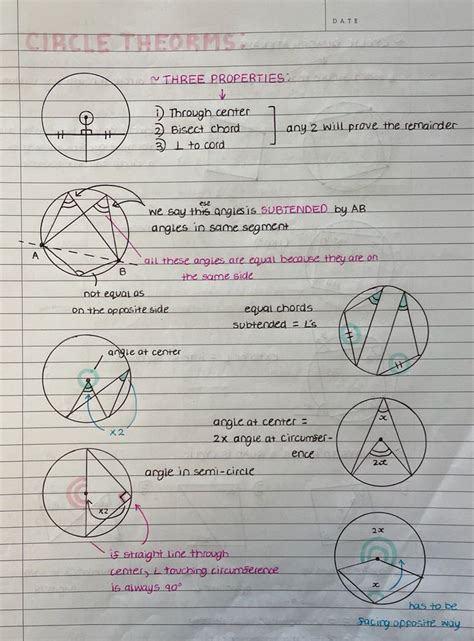 DATE
CIRCLE THEORMS:
~ THREE PROPERTIES:
↓
1) Through center
2) Bisect chord
3) L to cord
any 2 will prove the remainder
we say this ese angles is SUBTENDED by AB
angles in same segment
A
B
all these angles are equal because they are on
the same side
not equal as
on the opposite side
equal chords
subtended = L's
angle at center
x2
angle at center =
2x angle at circumfer-
ence
x
2x
angle in semi-circle
x2
if straight line through
center, L touching circumference
is always 90°
2x
x
has to be
facing opposite way